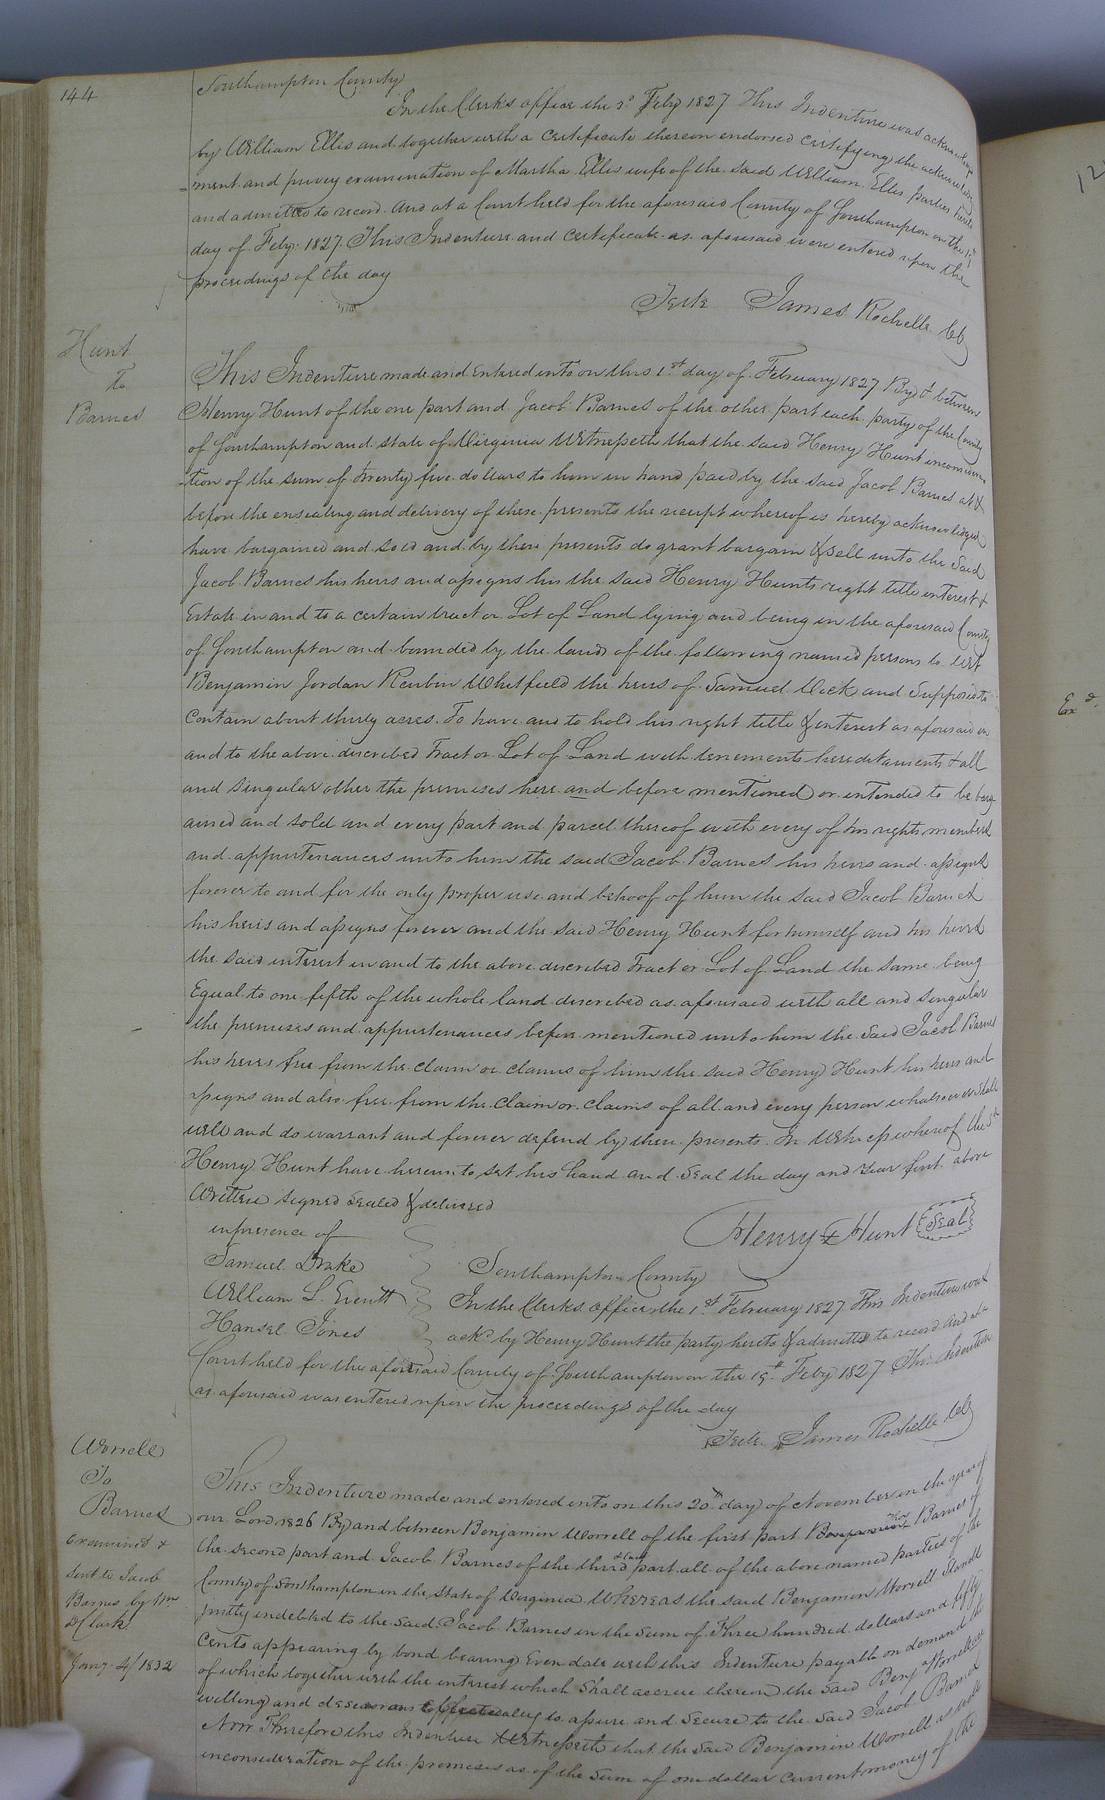 144
Southampton County
In the Clerks office the 3d Feby 1827 This Indenture was acknowledg
by William Ellis and together with a Certificate thereon endorsed certifying the acknowledg
ment and privy examination of Martha Ellis wife of the said William Ellis parties hereto
and admitted to record. And at a Court held for the aforesaid County of Southampton on the
day of Feby: 1827. This Indenture and certificate as aforesaid were entered upon the
proceedings of the day
Teste James Rochelle Clk
Hunt
To
Barnes
This Indenture made and Entered into on this 1st day of February 1827 By & between
Henry Hunt of the one part and Jacob Barnes of the other part each party of the County
of Southampton and state of Virginia Witnesseth that the said Henry Hunt in considera
tion of the sum of twenty five dollars to him in hand paid by the said Jacob Barnes at &
before the ensealing and delivery of these presents the receipt whereof is hereby acknowledged
have bargained and sold and by these presents do grant bargain & sell unto the said
Jacob Barnes his heirs and assigns his the said Henry Hunts right title interest &
Estate in and to a certain tract or Lot of Land lying and being in the aforesaid County
of Southampton and bounded by the lands of the following named persons to wit
Benjamin Jordan Reubin Whitfield the heirs of Samuel Vick and Supposed to
contain about thirty acres. To have and to hold his right title & interest as aforesaid in
and to the above discribed Tract or Lot of Land with tenements hereditaments & all
and singular other the premises here and before mentioned or intended to be barg
ained and sold and every part and parcel thereof with every of his rights members
and appurtenances unto him the said Jacob Barnes his heirs and assigns
forever to and for the only proper use and behoof of him the said Jacob Barnes
his heirs and assigns forever and the said Henry Hunt for himself and his heirs
the said interest in and to the above discribed Tract or Lot of Land the same being
Equal to one fifth of the whole land discribed as aforesaid with all and singular
the premises and appurtenances before mentioned unto him the said Jacob Barnes
his heirs free from the claim or claims of him the said Henry Hunt his heirs and
assigns and also free from the claim or claims of all and every person whatsoever shall
will and do warrant and forever defend by these presents. In Witness whereof the sd
Henry Hunt have hereunto set his hand and seal the day and year first above
Written signed sealed & delivered
in presence of
Henry + Hunt {Seal}
Samuel Drake
William L. Everitt
Hansel Jones
Southampton County
In the Clerks office the 1st February 1827 This Indenture was
ackd by Henry Hunt the party hereto & admitted to record And at a
Court held for the aforesaid County of Southampton on the 19th Feby 1827 This Indenture
as aforesaid was entered upon the proceedings of the day
Teste James Rochelle Clk
Worrell
To
Barnes
Examined &
sent to Jacob
Barnes by Wm
D Clark
Jany. 4/1832
This Indenture made and entered into on this 20th day of November in the year of
our Lord 1826 By and between Benjamin Worrell of the first part Barnes of
the second part and Jacob Barnes of the third part all of the above named parties of the
County of Southampton in the State of Virginia Whereas the said Benjamin Worrell Stands
justly indebted to the said Jacob Barnes in the sum of Three hundred dollars and fifty
Cents appearing by bond bearing Even date with this Indenture payable on demand the
of which together with the interest which shall accrue thereon the said Benj Worrell
willing and desirous Effectually to assure and secure to the said Jacob Barnes
Now Therefore this Indenture Witnesseth that the said Benjamin Worrell as well
inconsideration of the premises as of the sum of one dollar current money of the
Exd.